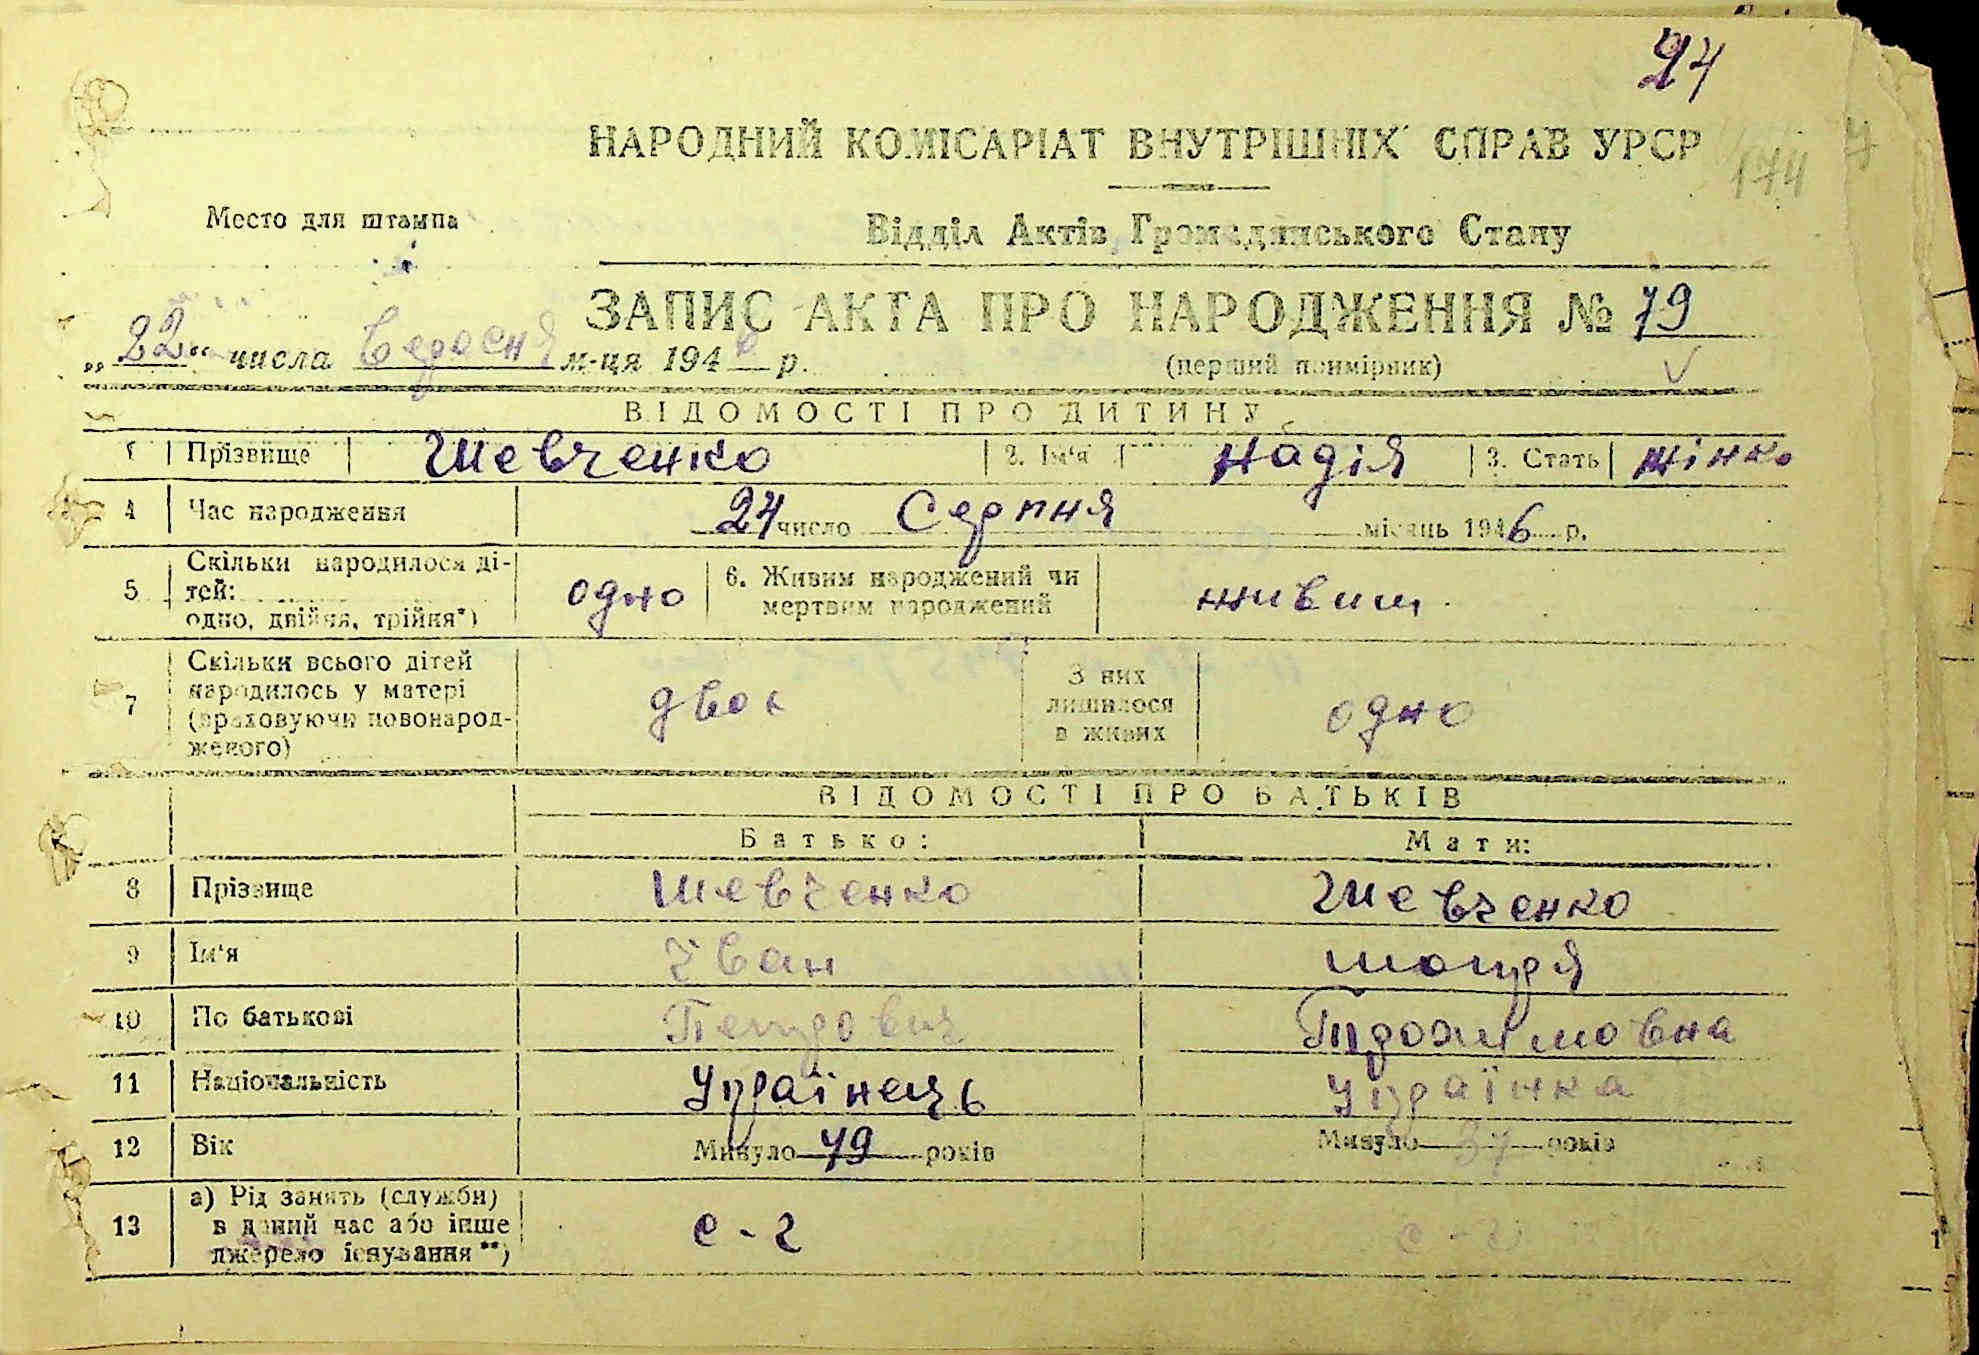 24
НАРОДНИЙ КОМІСАРІАТ ВНУТРІШНІХ СПРАВ УРСР
174
Место для штампа
Відділ Актів Громадянського Стану
ЗАПИС АКТА ПРО НАРОДЖЕННЯ № 79
„22“ числа Вересня м-ця 1946 р.
(перший примірник)
ВІДОМОСТІ ПРО ДИТИНУ
1 Прізвище Шевченко 2. Ім'я Надія 3. Стать жінко
4 Час народження 24 число Серпня місяць 1946 р.
5 Скільки народилося дітей: одно, двійня, трійня*) одно 6. Живим народжений чи мертвим народжений живим
7 Скільки всього дітей народилось у матері (враховуючи новонародженого) двоє З них лишилося в живих одно
ВІДОМОСТІ ПРО БАТЬКІВ
Батько: Мати:
8 Прізвище Шевченко Шевченко
9 Ім'я Іван Мотря
10 По батькові Петрович Трохимовна
11 Національність Українець Українка
12 Вік Минуло 49 років Минуло 34 років
13 а) Рід занять (служби) в даний час або інше джерело існування **) с-г с-г